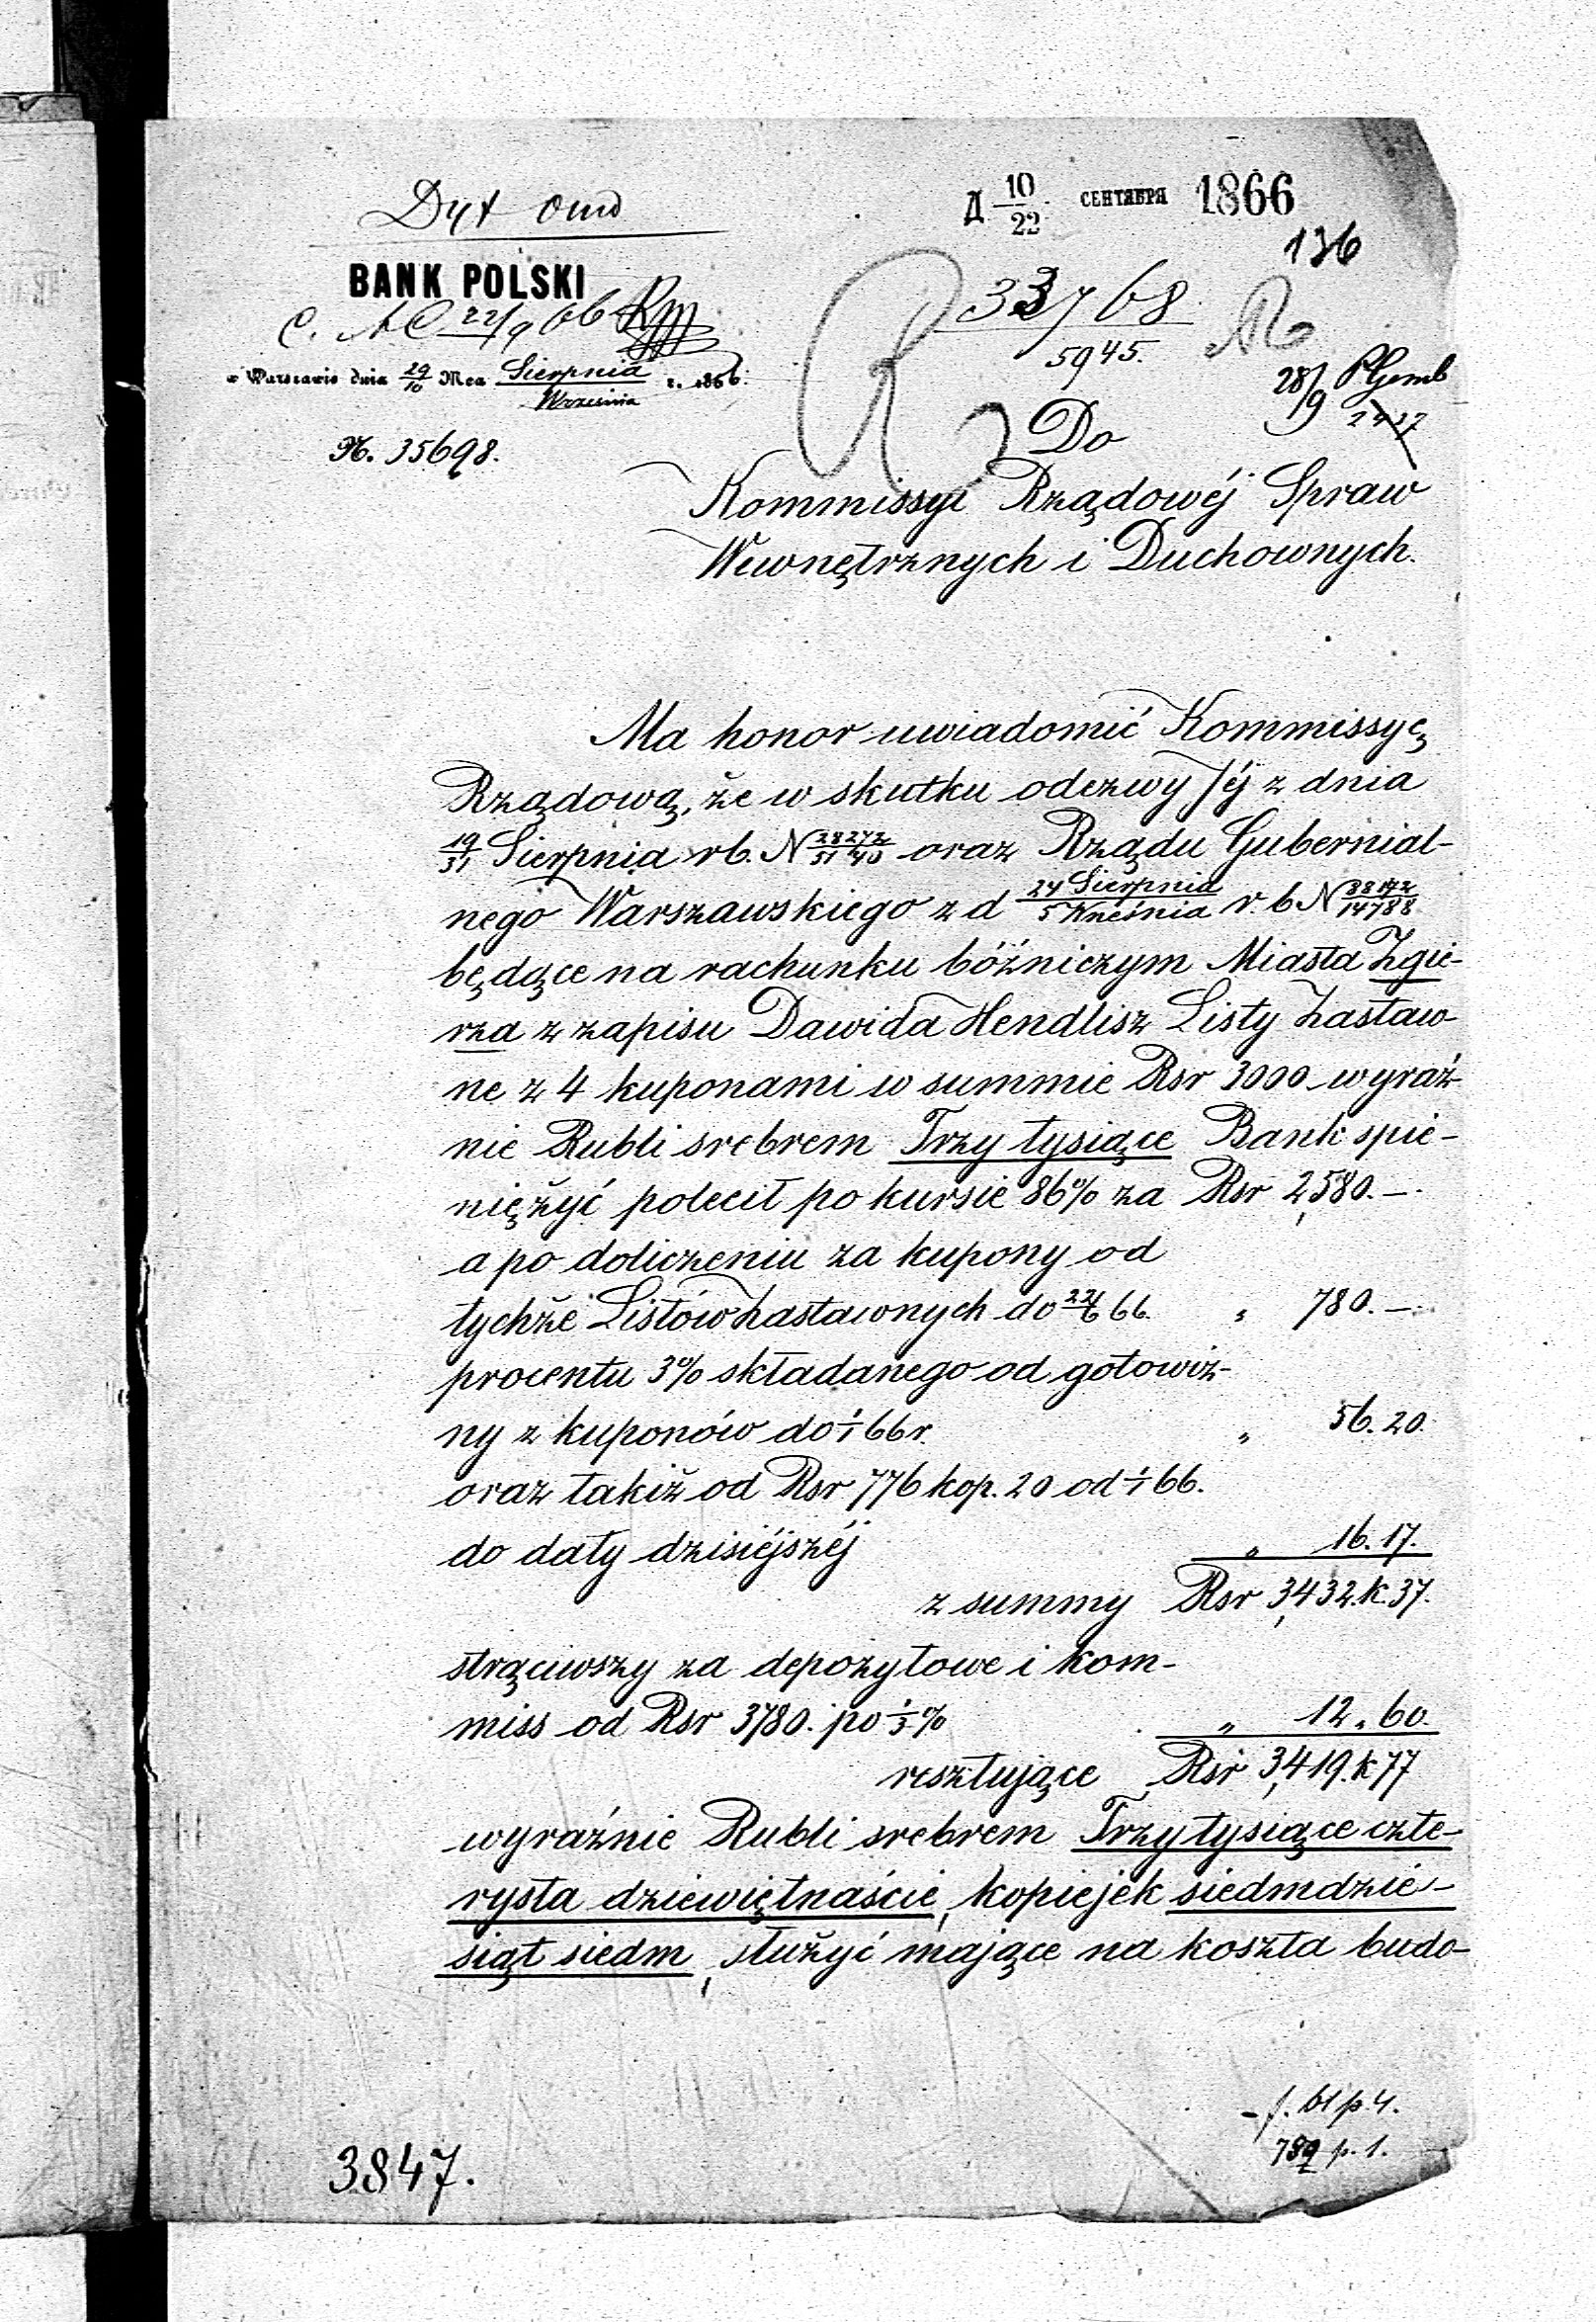 Dyt
Д 10/22 СЕНТЯБРЯ 1866
136
BANK POLSKI
33768
5945.
22/9 66
w Warszawie dnia 29/10 Mca Sierpnia/Września r. 1866.
28/9
2427
N. 35698.
Do
Kommissyi Rządowéj Spraw
Wewnętrznych i Duchownych.
Ma honor uwiadomić Kommissyę
Rządową, że w skutku odezwy Jéj z dnia
19/31 Sierpnia rb. N 28272/5140 oraz Rządu Gubernial-
nego Warszawskiego z d 24 Sierpnia/5 Września r. b N 38172/14788
będące na rachunku bóźniczym Miasta Zgie-
rza z zapisu Dawida Hendlisz Listy Zastaw-
ne z 4 kuponami w summie Rsr 3000 wyraź-
nie Rubli srebrem Trzy tysiące Bank spie-
niężyć polecił po kursie 86% za Rsr 2,580.—.
a po doliczeniu za kupony od
tychże Listów Zastawnych do 22/6 66. „ 780.—.
procentu 3% składanego od gotowiz-
ny z kuponów do 1/1 66 r. „ 56.20.
oraz takiż od Rsr 776 kop. 20 od 1/1 66.
do daty dzisiéjszéj „ 16.17.
z summy Rsr 3,432.k.37.
strąciwszy za depozytowe i kom-
miss od Rsr 3780. po 1/3 % „ 12.60.
resztujące Rsr 3,419.k 77
wyraźnie Rubli srebrem Trzy tysiące czte-
rysta dziewiętnaście, kopiejek siedmdzie-
siąt siedm, służyć mające na koszta budo-
f. 61 p. 4.
789 p. 1.
3847.